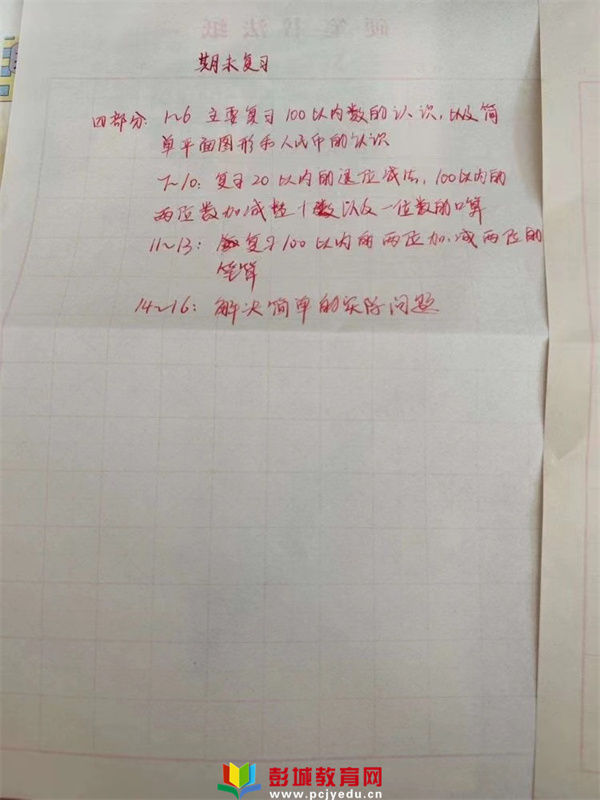 硬笔书法纸
期末复习
四部分: 1~6 主要复习100以内数的认识,以及简
单平面图形和人民币的认识
7~10: 复习20以内的退位减法,100以内的
两位数加减整十数以及一位数的口算
11~13: 复习100以内的两位加、减两位的
笔算
14~16: 解决简单的实际问题
彭城教育网
www.pcjyedu.cn